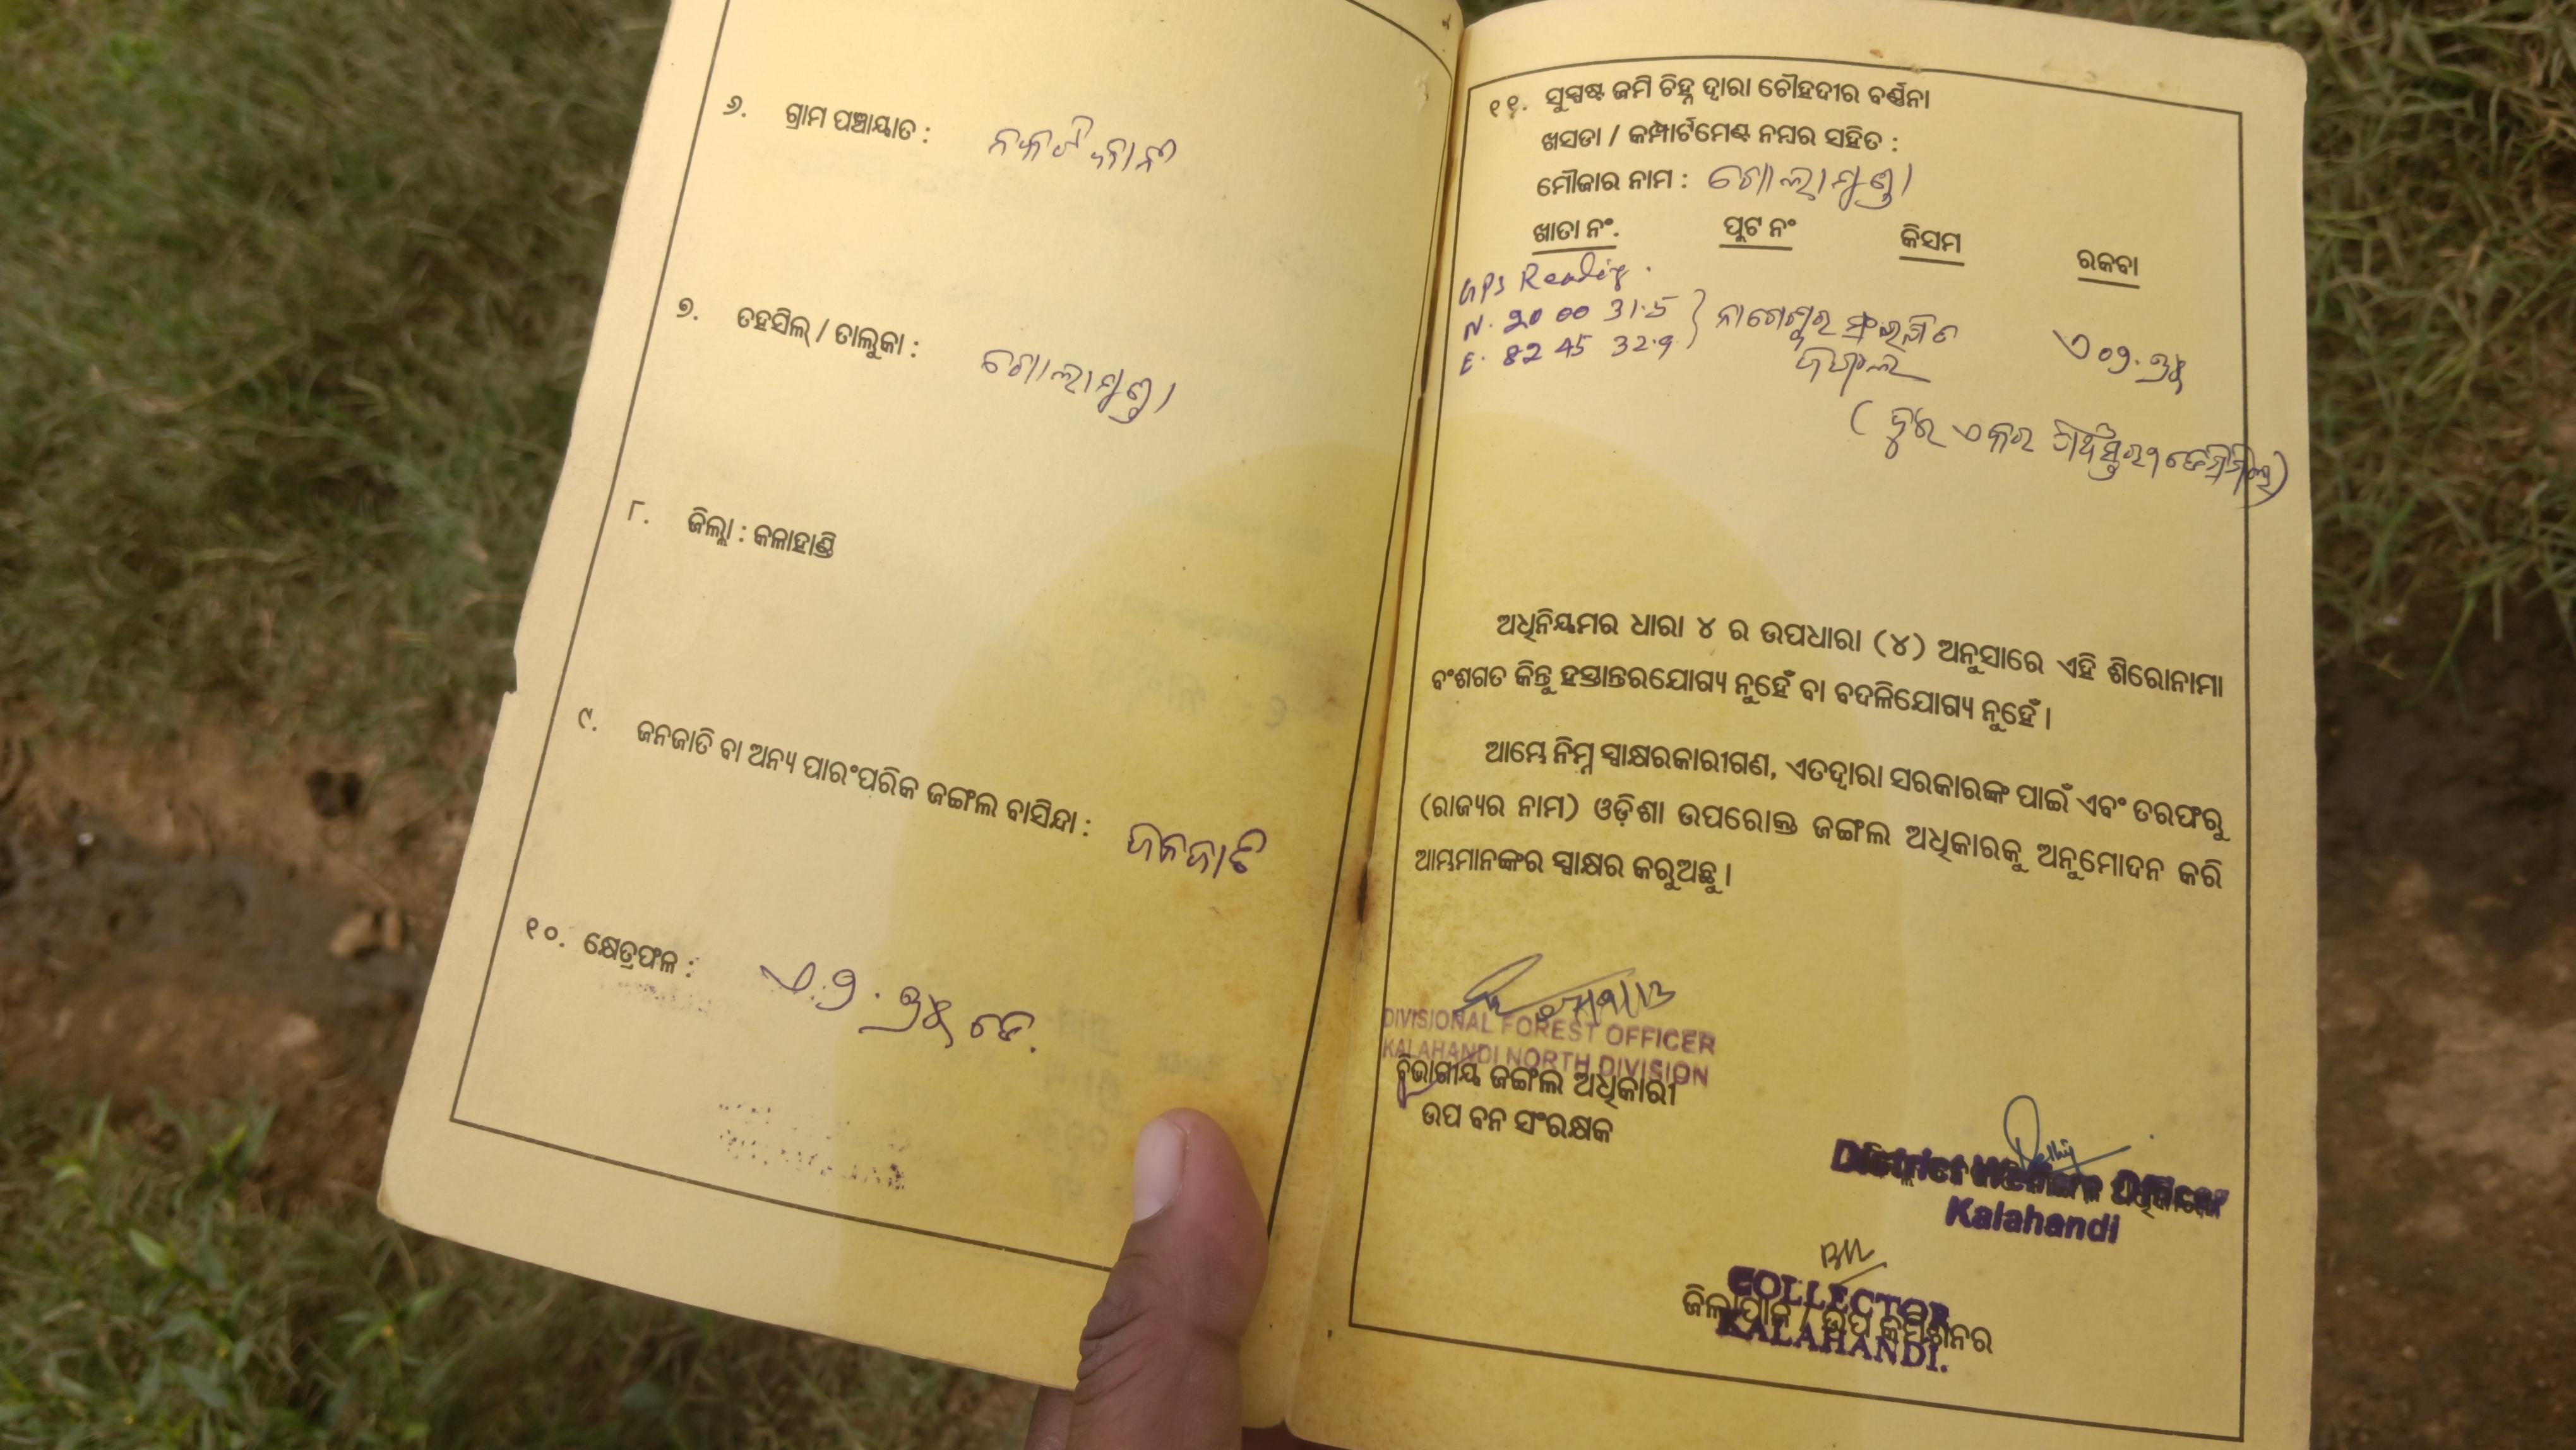 ୬. ଗ୍ରାମ ପଞ୍ଚାୟାତ :
୭. ତହସିଲ୍ / ତାଲୁକା : ଗୋଲାମୁଣ୍ଡା
୮. ଜିଲ୍ଲା : କଳାହାଣ୍ଡି
୯. ଜନଜାତି ବା ଅନ୍ୟ ପାରଂପରିକ ଜଙ୍ଗଲ ବାସିନ୍ଦା : ଜନଜାତି
୧୦. କ୍ଷେତ୍ରଫଳ :
୧୧. ସୁସ୍ପଷ୍ଟ ଜମି ଚିହ୍ନ ଦ୍ୱାରା ଚୌହଦୀର ବର୍ଣ୍ଣନା
ଖସଡା / କମ୍ପାର୍ଟମେଣ୍ଟ ନମ୍ବର ସହିତ :
ମୌଜାର ନାମ : ଗୋଲାମୁଣ୍ଡା
ଖାତା ନଂ. ପ୍ଲଟ ନଂ କିସମ ରକବା
GPS Reading.
N. 20 00 31.5
E. 82 45 32.9
ଜଙ୍ଗଲ
ଅଧିନିୟମର ଧାରା ୪ ର ଉପଧାରା (୪) ଅନୁସାରେ ଏହି ଶିରୋନାମା
ବଂଶଗତ କିନ୍ତୁ ହସ୍ତାନ୍ତରଯୋଗ୍ୟ ନୁହେଁ ବା ବଦଳିଯୋଗ୍ୟ ନୁହେଁ ।
ଆମ୍ଭେ ନିମ୍ନ ସ୍ୱାକ୍ଷରକାରୀଗଣ, ଏତଦ୍ୱାରା ସରକାରଙ୍କ ପାଇଁ ଏବଂ ତରଫରୁ
(ରାଜ୍ୟର ନାମ) ଓଡ଼ିଶା ଉପରୋକ୍ତ ଜଙ୍ଗଲ ଅଧିକାରକୁ ଅନୁମୋଦନ କରି
ଆମ୍ଭମାନଙ୍କର ସ୍ୱାକ୍ଷର କରୁଅଛୁ ।
DIVISIONAL FOREST OFFICER
KALAHANDI NORTH DIVISION
ବିଭାଗୀୟ ଜଙ୍ଗଲ ଅଧିକାରୀ
ଉପ ବନ ସଂରକ୍ଷକ
District Welfare Officer
Kalahandi
COLLECTOR
ଜିଲ୍ଲାପାଳ / ଉପ କମିଶନର
KALAHANDI.